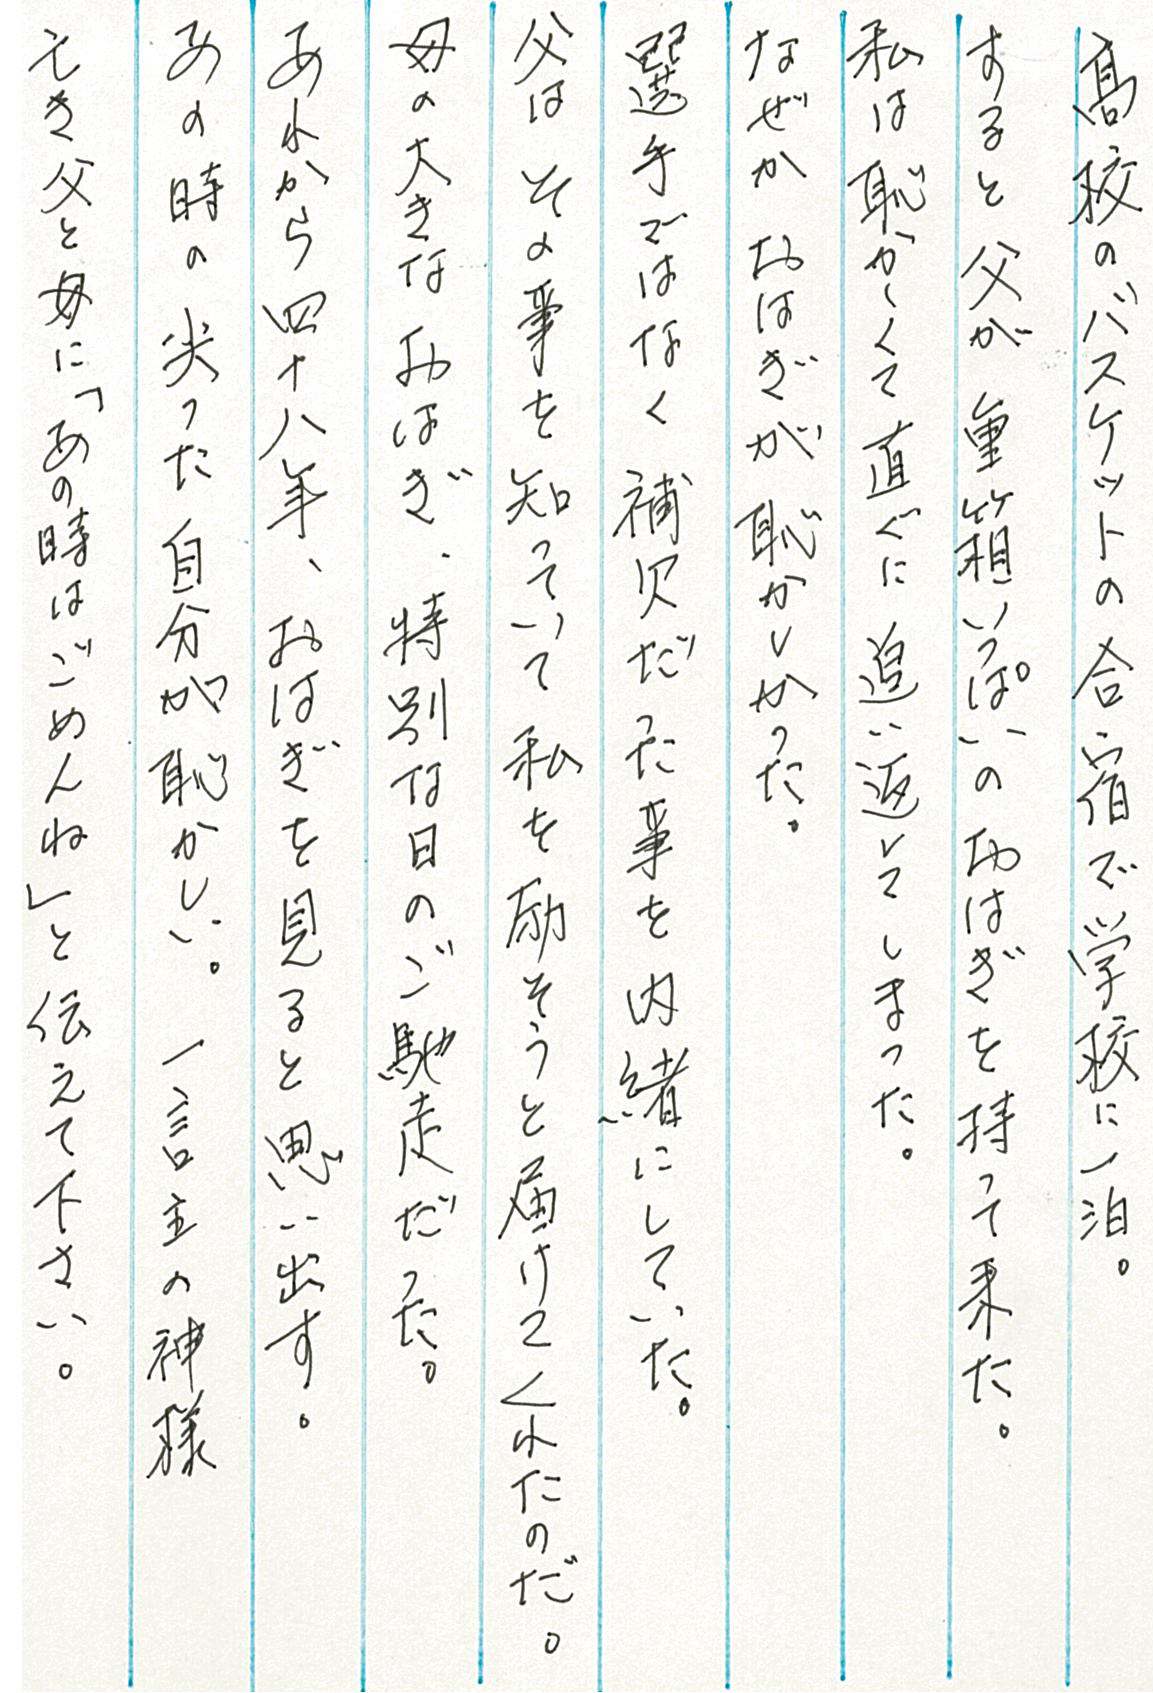 高校のバスケットの合宿で学校に一泊。
すると父が重箱いっぱいのおはぎを持って来た。
私は恥かしくて直ぐに追い返してしまった。
なぜかおはぎが恥かしかった。
選手ではなく補欠だった事を内緒にしていた。
父はその事を知っていて私を励そうと届けてくれたのだ。
母の大きなおはぎ、特別な日のご馳走だった。
あれから四十八年、おはぎを見ると思い出す。
あの時の尖った自分が恥かしい。一言主の神様
亡き父と母に「あの時はごめんね」と伝えて下さい。